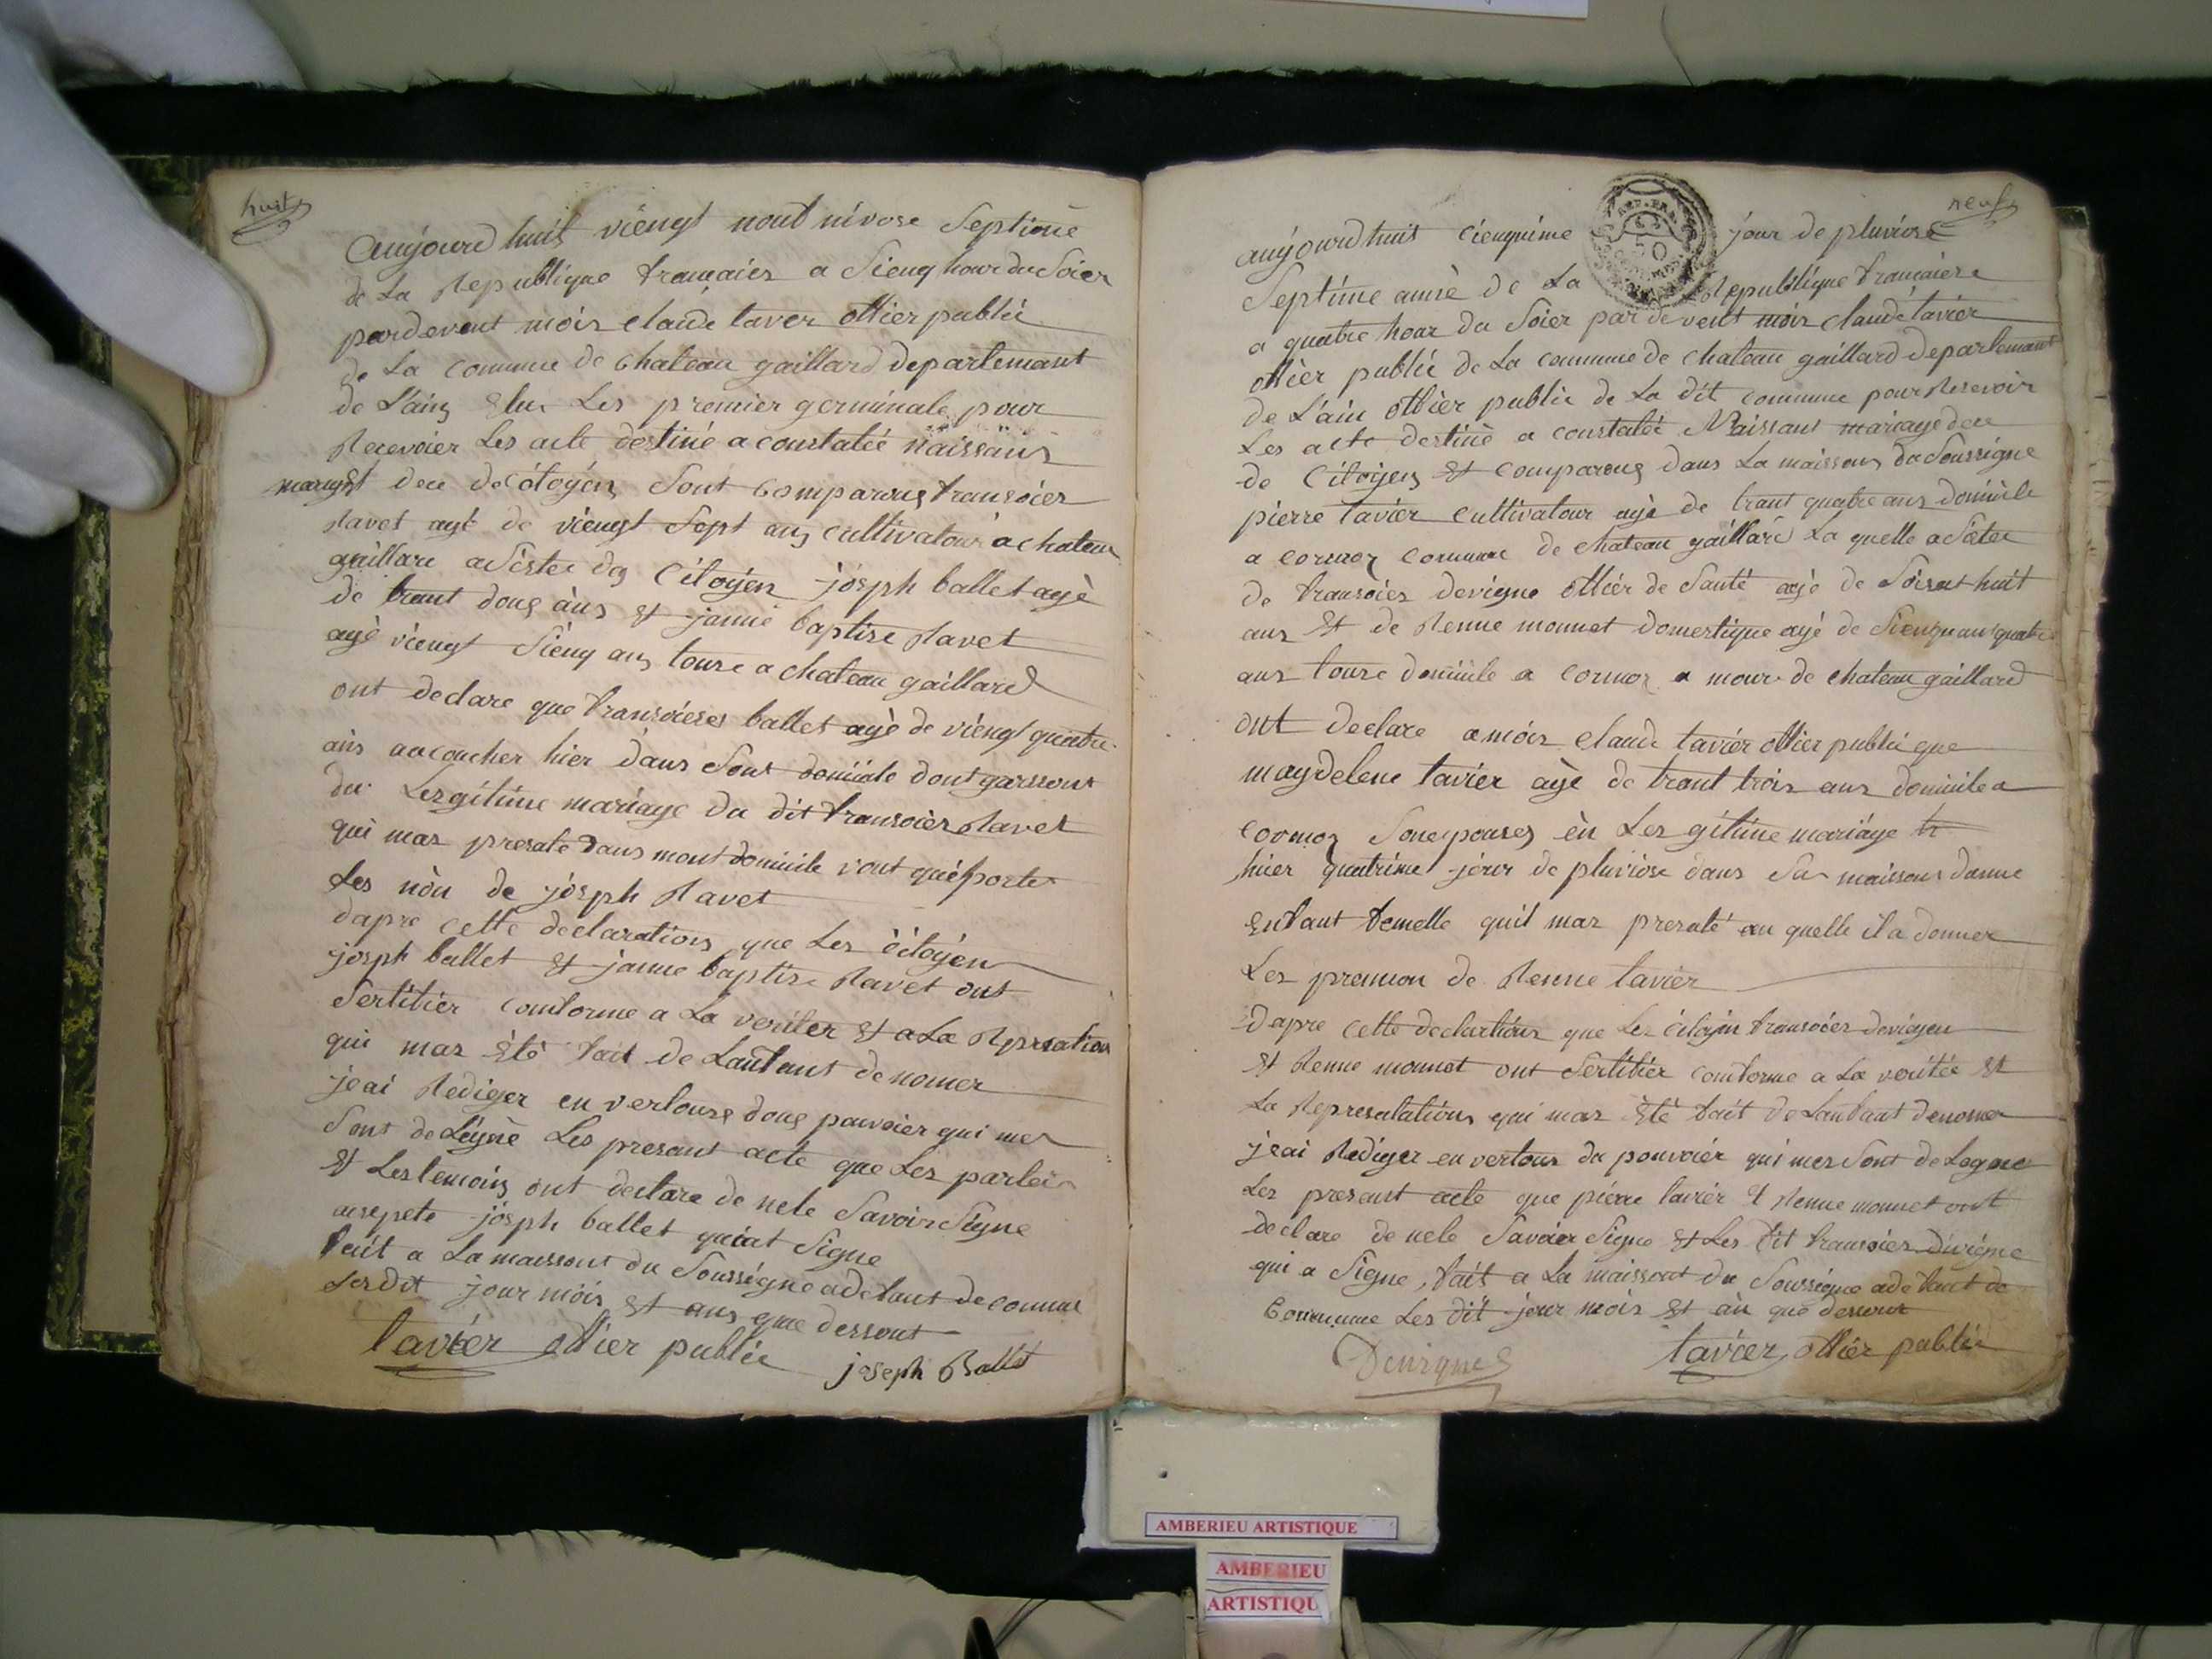 huit
aujourd huit viengt nout nivose Septieme
de La Republique francaier a Sieng hour du Soier
pardevent mois claude tavier offier publié
de La comune de chateau gaillard departemant
de L'ain Elu Les premier germinale pour
Recevoier Les acte destiné a constatée naissans
maruyt dece de citoyen Sont comparous fransoier
Ravet agé de viengt Sept ans cultivatour a chateau
gaillare asistee des Citoyen joseph ballet agè
de trant dous àns et janne baptise Ravet
agè viengt Sieng ans tousse a chateau gaillard
ont declare que fransoiese ballet agè de viengt quatre
ans aacoucher hier dans Sont domicile dont garssont
du Lesgitime mariage du dit fransoier Ravet
qui mas presate dans mont domicile vont quéporte
Les nòn de jòseph Ravet
dapre cette declarations que Les citoyen
joseph ballet et janne baptise Ravet ont
Sertifier conforme a La veriter et a La Represation
qui mas èté fait de Lanfant denomer
jeai Rediger en vertouse dous pouvoier qui mes
Sont deLégné Les presant acte que Les parteis
et Les temoins ont declare de nele Savoir Signe
acsepete jòseph ballet quiat Signe
fait a La maissont du Soussigne adefaut decomun
Lesdit jour mois et ans que dessout
tavier offier publié joseph Ballet
neuf
aujourdhuit Ciengnime jour de pluviose
REP. FRA.
50
Septime annè de La Republique francaiere
a quatre hour du Soier par devent mois claude tavier
offièr publié de La commune de chateau gaillard departemant
de L'ain offièr publié de La dit commune pour Resevoir
Les acte destiné a constatée Naissans mariage dece
de Citoyen et comparous dans La maissons du Soussigne
pierre tavier cultivatour agè de trant quatre ans domicile
a cormoz commune de chateau gaillard La quelle asistee
de fransoies devigne offièr de Santé agé de Soisant huit
ans et de Renne monnet domestique agé de Siengnant quatre
ans tousse domicile a cormoz a moure de chateau gaillard
ont declare a mois claude tavier offier publié que
magdelene tavier agè de trant trois ans domicile a
cormoz Sonepouses èn Les gitime mariàge
hier quatrime jour de pluviose dans Sa maissons danne
enfant femelle quil mas presaté au quelle il a donner
Les prennon de Renne tavier
dapre cette declartions que Les citoyen fransoies devigne
et Renne monnet ont Sertifier conforme a La veritée et
La Represatations qui mas èté fait de Lanfant denomer
jeai Rediger en vertous du pouvoier qui mes Sont deLegne
Les presant acte que piérre tavier et Renne monnet ont
declare de nele Savoier Signe et Les dit fransoies divigne
qui a Signe, fait a La maissont du Soussigne adefaut de
Commune Les dit jour mois et àn que dessus
Devigne tavier offièr publié
AMBERIEU ARTISTIQUE
AMBERIEU
ARTISTIQU